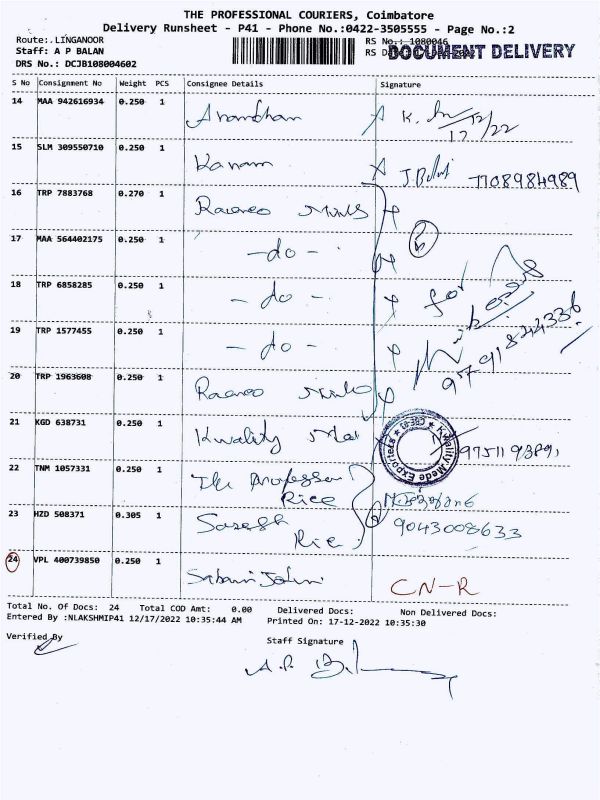 THE PROFESSIONAL COURIERS, Coimbatore
Delivery Runsheet - P41 - Phone No.:0422-3505555 - Page No.:2
Route:.LINGANOOR RS No.: 1080046
Staff: A P BALAN RS D
DOCUMENT DELIVERY
DRS No.: DCJB108004602
S No Consignment No Weight PCS Consignee Details Signature
14 MAA 942616934 0.250 1 Anandhan K.
15 SLM 309550710 0.250 1 J. 7708984989
16 TRP 7883768 0.270 1
17 MAA 564402175 0.250 1 - do -
18 TRP 6858285 0.250 1 - do - for
19 TRP 1577455 0.250 1 - do - 9791844336
20 TRP 1963608 0.250 1
21 KGD 638731 0.250 1 Kwality
Kwality Mede Exporters
22 TNM 1057331 0.250 1 The
Rice
23 HZD 508371 0.305 1 9043008633
Rice
24 VPL 400739850 0.250 1 CN-R
Total No. Of Docs: 24 Total COD Amt: 0.00 Delivered Docs: Non Delivered Docs:
Entered By :NLAKSHMIP41 12/17/2022 10:35:44 AM Printed On: 17-12-2022 10:35:30
Verified By Staff Signature
A.P.